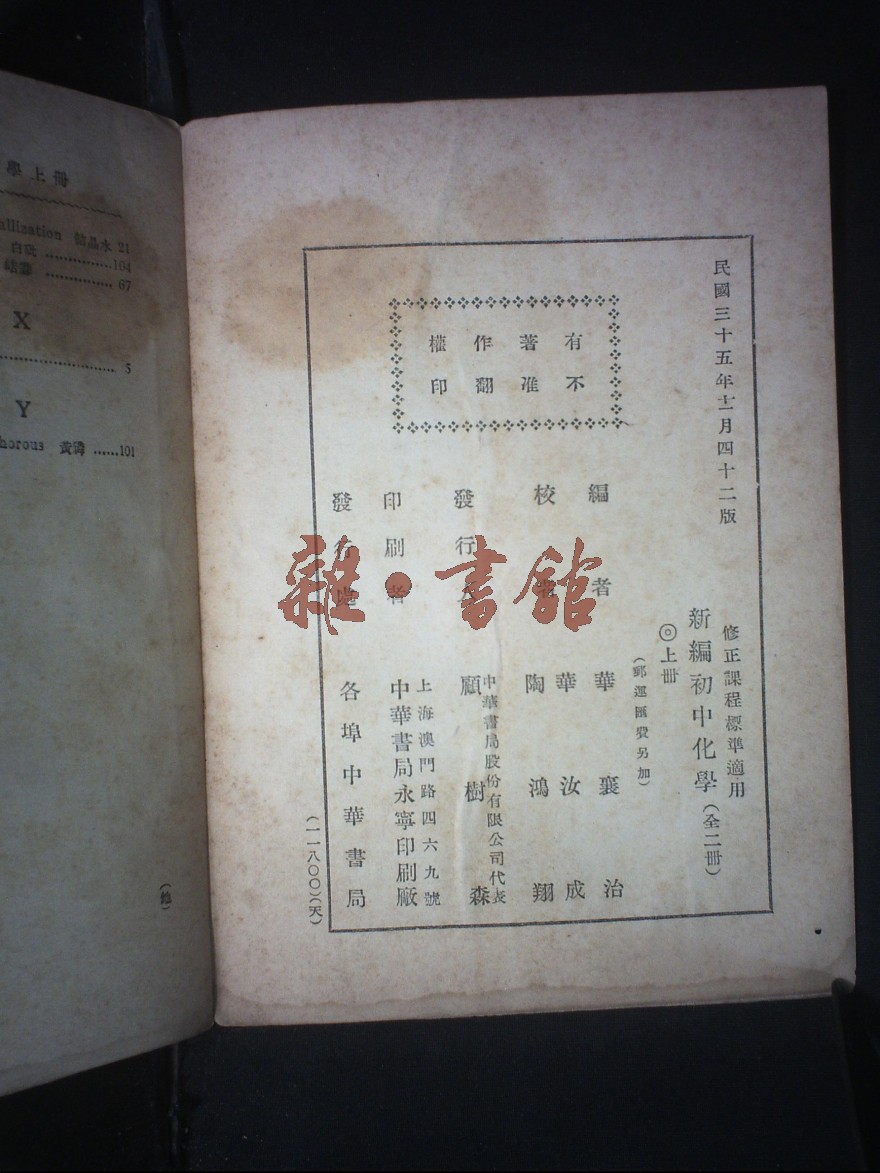 學上册
allization 結晶水 21
白砒 ...............104
............... 67
X
............... 5
Y
horous 黃磷 ......101
民國三十五年 月四十二版
修正課程標準適用
新編初中化學(全二冊)
◎上冊
(郵運匯費另加)
有著作權
不准翻印
編者 華襄治
校者 華汝成
陶鴻翔
發行人 中華書局股份有限公司代表
顧樹森
印刷者 上海澳門路四六九號
中華書局永寧印刷廠
發行處 各埠中華書局
(一一八〇〇)(天)
雜·書館